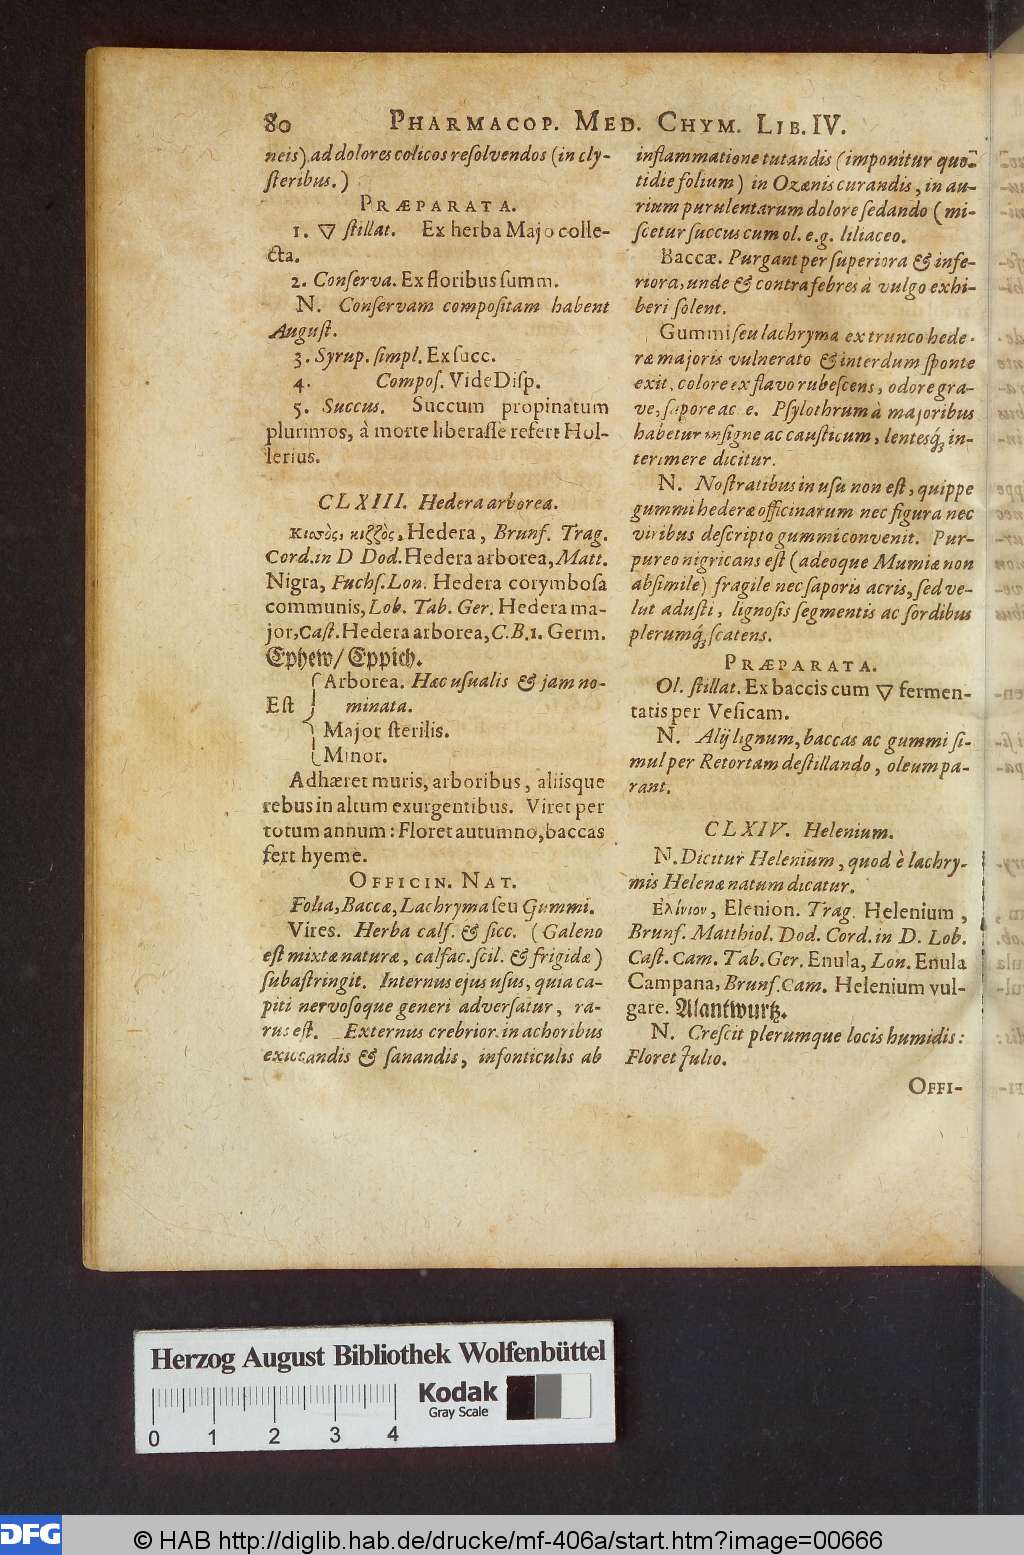 80 PHARMACOP. MED. CHYM. LIB. IV.
neis) ad dolores colicos resolvendos (in cly-
steribus.)
PRÆPARATA.
1. ▽ stillat. Ex herba Majo colle-
cta.
2. Conserva. Ex floribus summ.
N. Conservam compositam habent
August.
3. Syrup. simpl. Ex succ.
4. Compos. Vide Disp.
5. Succus. Succum propinatum
plurimos, à morte liberasse refert Hol-
lerius.
CLXIII. Hedera arborea.
Κισσὸς, κιζζὸς, Hedera, Brunf. Trag.
Cord. in D Dod. Hedera arborea, Matt.
Nigra, Fuchs. Lon. Hedera corymbosa
communis, Lob. Tab. Ger. Hedera ma-
jor, Cast. Hedera arborea, C.B. 1. Germ.
Ephew/ Eppich.
Arborea. Hæc usualis & jam no-
Est minata.
Major sterilis.
Minor.
Adhæret muris, arboribus, aliisque
rebus in altum exurgentibus. Viret per
totum annum: Floret autumno, baccas
fert hyeme.
OFFICIN. NAT.
Folia, Baccæ, Lachryma seu Gummi.
Vires. Herba calf. & sicc. (Galeno
est mixtæ naturæ, calfac. scil. & frigidæ)
subastringit. Internus ejus usus, quia ca-
piti nervosoque generi adversatur, ra-
rus est. Externus crebrior. in achoribus
exiccandis & sanandis, in fonticulis ab
inflammatione tutandis (imponitur quo-
tidie folium) in Ozænis curandis, in au-
rium purulentarum dolore sedando (mi-
scetur succus cum ol. e.g. liliaceo.
Baccæ. Purgant per superiora & infe-
riora, unde & contra febres à vulgo exhi-
beri solent.
Gummi seu lachryma ex trunco hede-
ræ majoris vulnerato & interdum sponte
exit, colore ex flavo rubescens, odore gra-
ve, sapore ac e. Psylothrum à majoribus
habetur insigne ac causticum, lentesq́; in-
terimere dicitur.
N. Nostratibus in usu non est, quippe
gummi hederæ officinarum nec figura nec
viribus descripto gummi convenit. Pur-
pureo nigricans est (adeoque Mumiæ non
absimile) fragile nec saporis acris, sed ve-
lut adusti, lignosis segmentis ac sordibus
plerumq́; scatens.
PRÆPARATA.
Ol. stillat. Ex baccis cum ▽ fermen-
tatis per Vesicam.
N. Alij lignum, baccas ac gummi si-
mul per Retortam destillando, oleum pa-
rant.
CLXIV. Helenium.
N. Dicitur Helenium, quod è lachry-
mis Helenæ natum dicatur.
Ἑλίνιον, Elenion. Trag. Helenium,
Brunf. Matthiol. Dod. Cord. in D. Lob.
Cast. Cam. Tab. Ger. Enula, Lon. Enula
Campana, Brunf. Cam. Helenium vul-
gare. Alantwurtz.
N. Crescit plerumque locis humidis:
Floret Julio.
OFFI-
Herzog August Bibliothek Wolfenbüttel
Kodak
Gray Scale
0 1 2 3 4
DFG © HAB http://diglib.hab.de/drucke/mf-406a/start.htm?image=00666